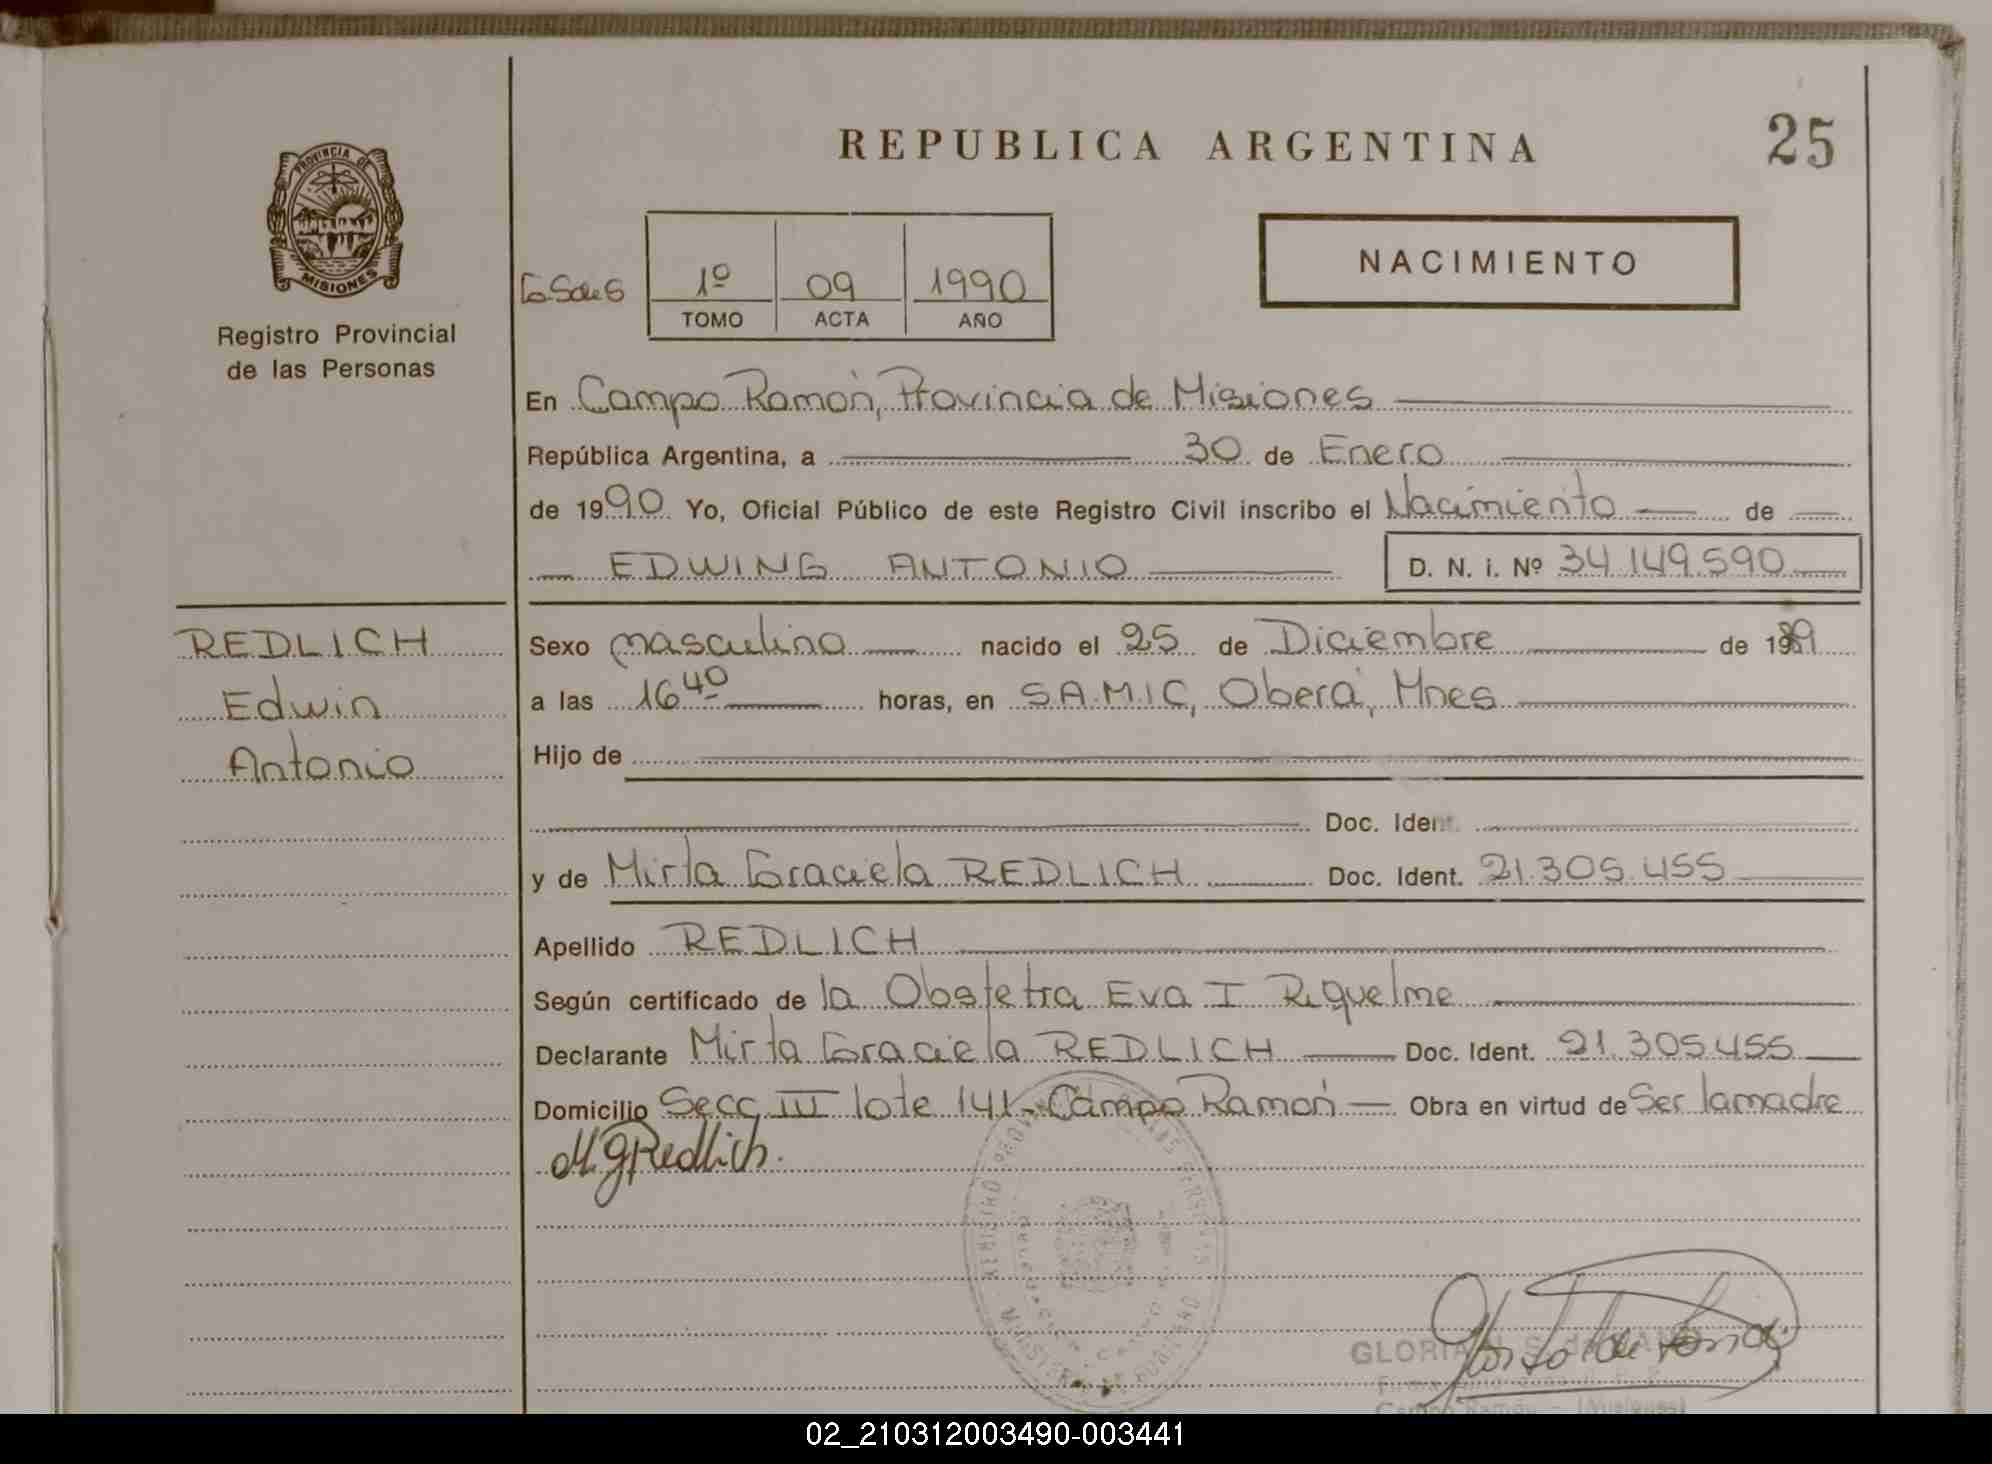 REPUBLICA ARGENTINA
25
PROVINCIA DE
MISIONES
Registro Provincial
de las Personas
1º 09 1990
TOMO ACTA AÑO
NACIMIENTO
En Campo Ramón, Provincia de Misiones
República Argentina, a 30 de Enero
de 1990 Yo, Oficial Público de este Registro Civil inscribo el Nacimiento de
EDWING ANTONIO D. N. i. Nº 34.149.590
REDLICH
Edwin
Antonio
Sexo masculino nacido el 25 de Diciembre de 1989
a las 16 40 horas, en S.A.M.I.C, Oberá, Mnes
Hijo de
Doc. Ident.
y de Mirta Graciela REDLICH Doc. Ident. 21.305.455
Apellido REDLICH
Según certificado de la Obstetra Eva I Riquelme
Declarante Mirta Graciela REDLICH Doc. Ident. 21.305.455
Domicilio Secc III lote 141- Campo Ramón Obra en virtud de Ser la madre
M.g Redlich.
GLORIA
Campo Ramón
02_210312003490-003441